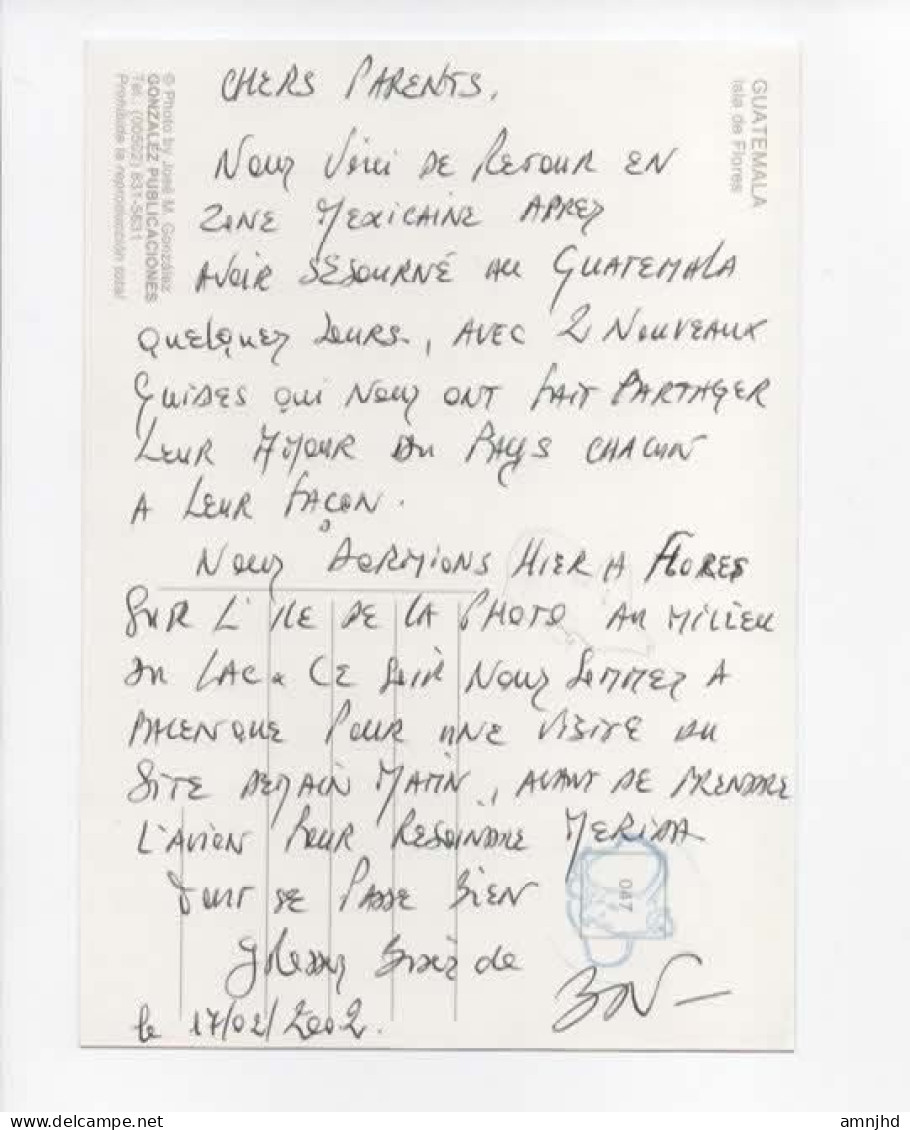 CHERS PARENTS,
NOUS VOICI DE RETOUR EN
ZONE MEXICAINE APRES
AVOIR SÉJOURNÉ AU GUATEMALA
QUELQUES JOURS, AVEC 2 NOUVEAUX
GUIDES QUI NOUS ONT FAIT PARTAGER
LEUR AMOUR DU PAYS CHACUN
A LEUR FAÇON.
NOUS DORMIONS HIER A FLORES
SUR L'ILE DE LA PHOTO AU MILIEU
DU LAC. CE SOIR NOUS SOMMES A
PALENQUE POUR UNE VISITE DU
SITE DEMAIN MATIN, AVANT DE PRENDRE
L'AVION POUR REJOINDRE MERIDA
TOUT SE PASSE BIEN
de
le 17/02/2002.
GUATEMALA
Isla de Flores
© Photo by José M. González
GONZALEZ PUBLICACIONES
Tel.: (00502) 831-5631
Prohibida la reproducción total
047
delcampe.net
amnjhd